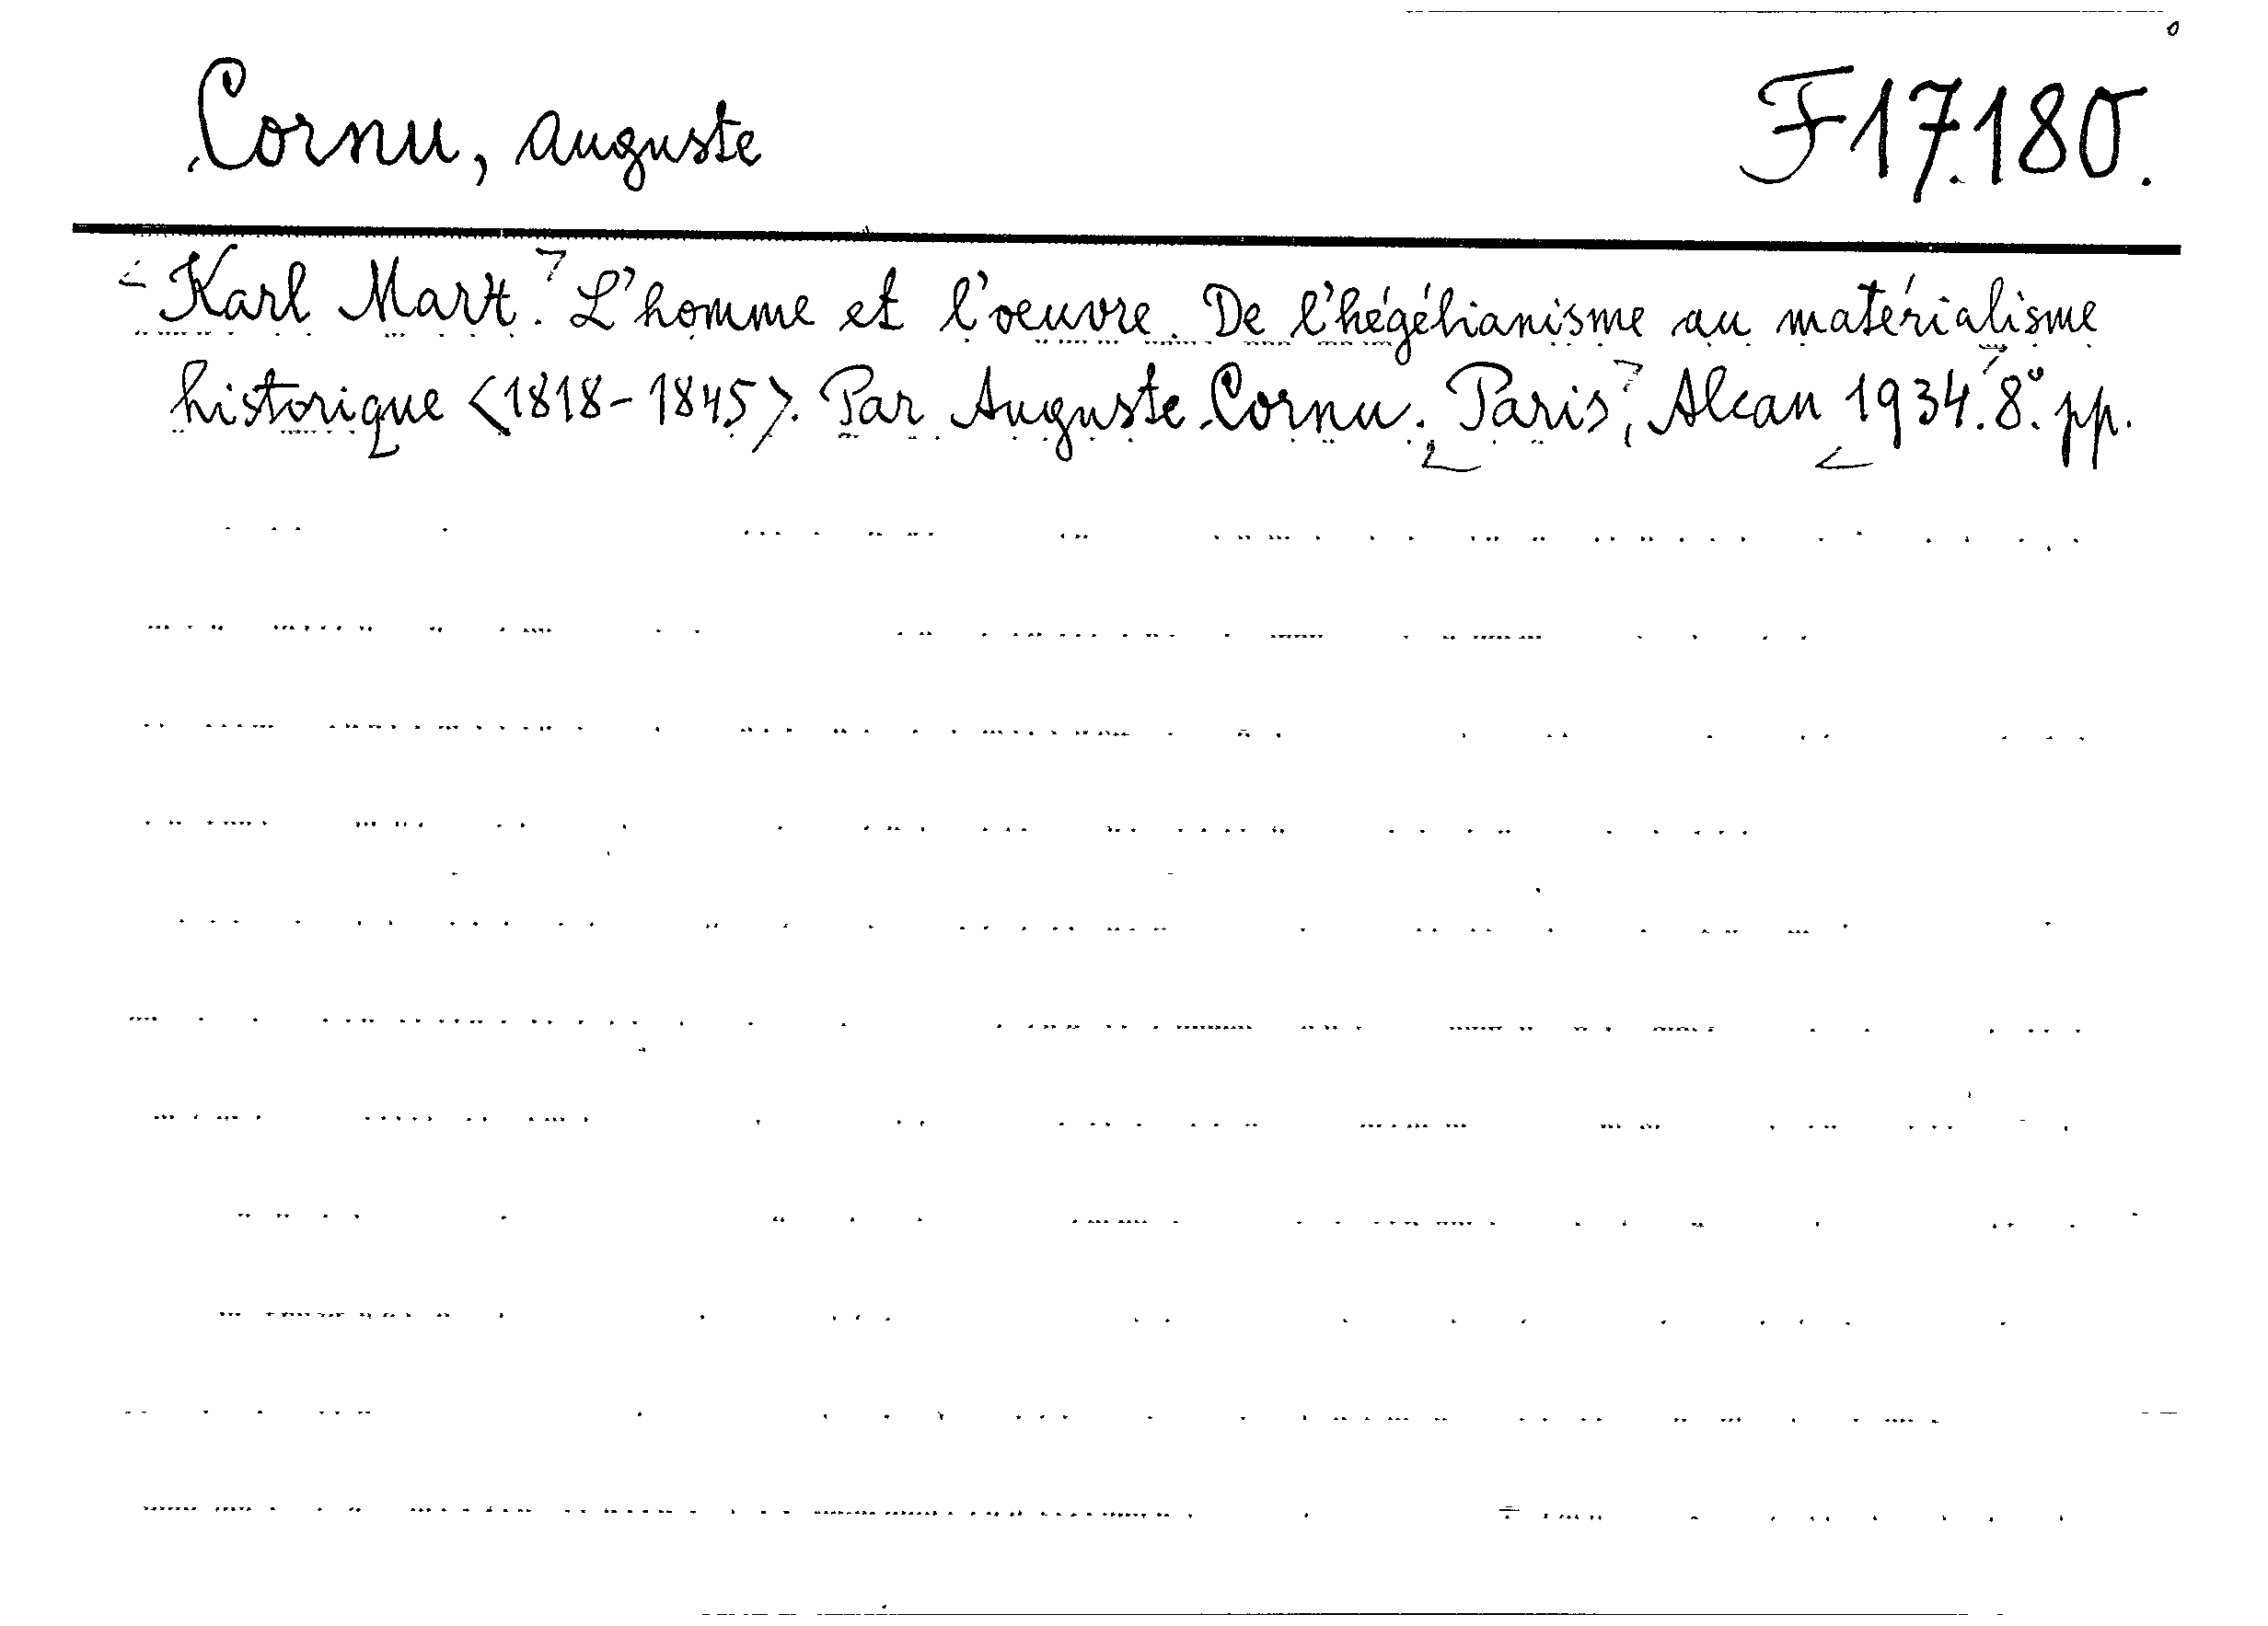 Cornu, Auguste F17.180.
Karl Marx. L'homme et l'oeuvre. De l'hégélianisme au matérialisme
historique <1818-1845>. Par Auguste Cornu. Paris, Alcan 1934. 8°. pp.